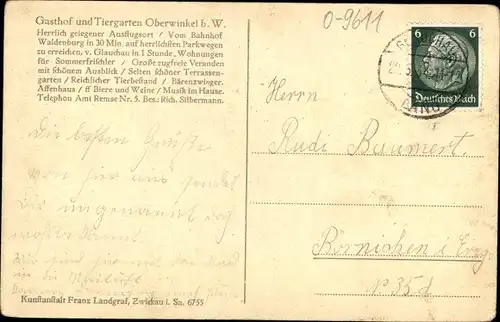 Gasthof und Tiergarten Oberwinkel b. W.
Herrlich gelegener Ausflugsort / Vom Bahnhof
Waldenburg in 30 Min. auf herrlichsten Parkwegen
zu erreichen, v. Glauchau in 1 Stunde, Wohnungen
für Sommerfrischler / Große zugfreie Veranden
mit schönem Ausblick / Selten schöner Terrassen-
garten / Reichlicher Tierbestand / Bärenzwinger,
Affenhaus / ff Biere und Weine / Musik im Hause.
Telephon Amt Remse Nr. 5. Bes.: Rich. Silbermann.
0-9611
6 6
Deutsches Reich
Herrn
Rudi Baumert.
Börnichen i. Erzg.
No 35 d
Die besten Grüße
von hier aus sendet
Dir ungenannt doch
Kunstanstalt Franz Landgraf, Zwickau i. Sa. 6755